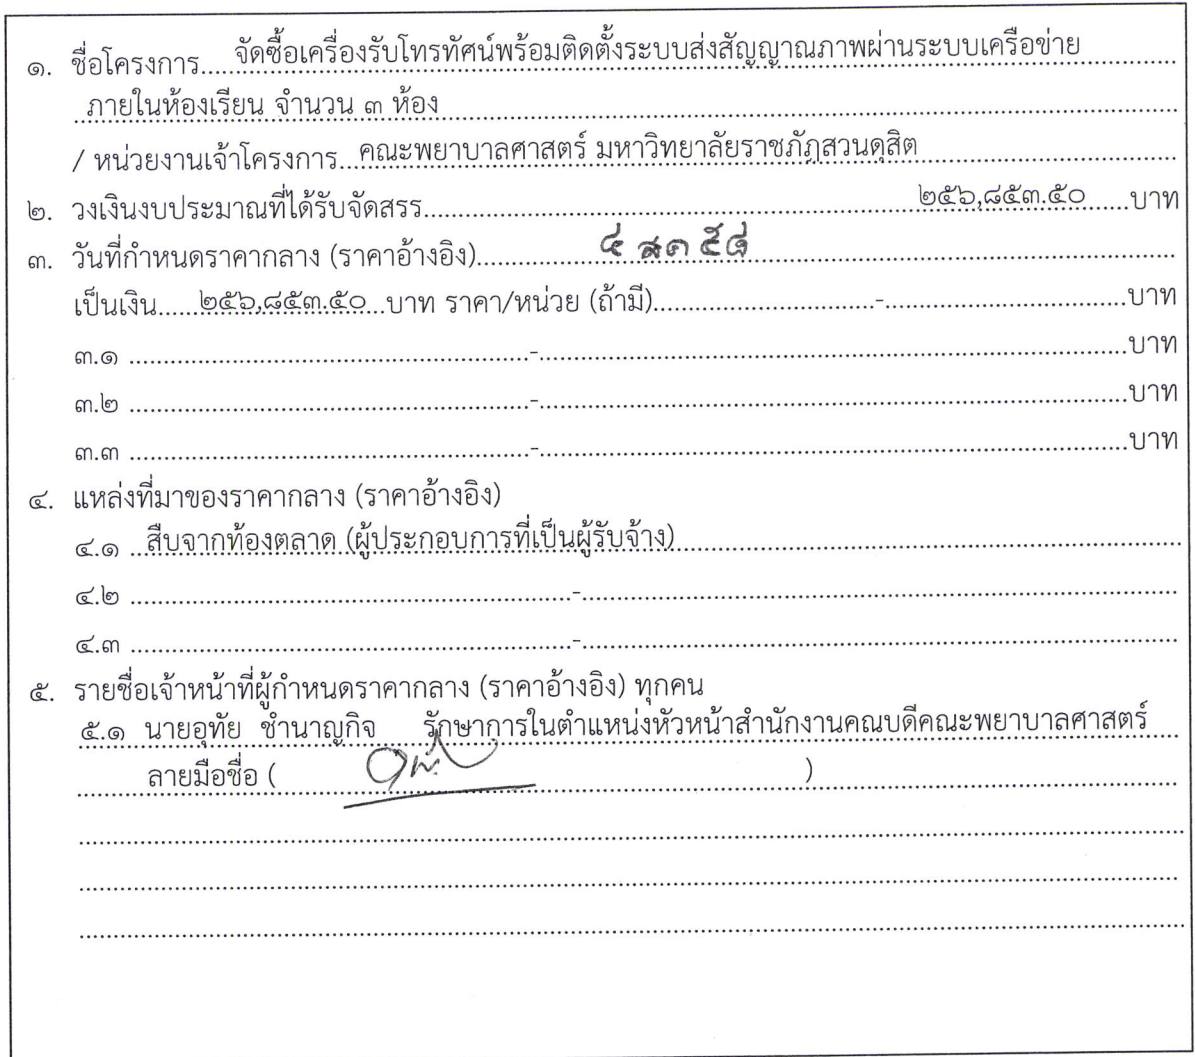 ๑. ชื่อโครงการ....จัดซื้อเครื่องรับโทรทัศน์พร้อมติดตั้งระบบส่งสัญญาณภาพผ่านระบบเครือข่าย
ภายในห้องเรียน จำนวน ๓ ห้อง
/ หน่วยงานเจ้าโครงการ...คณะพยาบาลศาสตร์ มหาวิทยาลัยราชภัฏสวนดุสิต
๒. วงเงินงบประมาณที่ได้รับจัดสรร....๒๕๖,๘๕๓.๕๐....บาท
๓. วันที่กำหนดราคากลาง (ราคาอ้างอิง)....๔ สค ๕๘
เป็นเงิน....๒๕๖,๘๕๓.๕๐...บาท ราคา/หน่วย (ถ้ามี)....-....บาท
๓.๑ ....-....บาท
๓.๒ ....-....บาท
๓.๓ ....-....บาท
๔. แหล่งที่มาของราคากลาง (ราคาอ้างอิง)
๔.๑ ...สืบจากท้องตลาด (ผู้ประกอบการที่เป็นผู้รับจ้าง)
๔.๒ ....-....
๔.๓ ....-....
๕. รายชื่อเจ้าหน้าที่ผู้กำหนดราคากลาง (ราคาอ้างอิง) ทุกคน
๕.๑ นายอุทัย ชำนาญกิจ รักษาการในตำแหน่งหัวหน้าสำนักงานคณบดีคณะพยาบาลศาสตร์
ลายมือชื่อ ( )